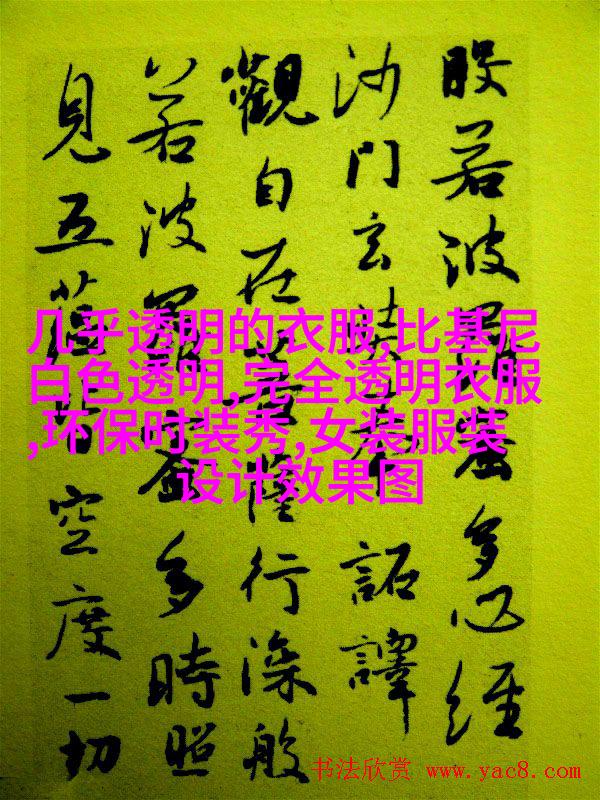 般若波羅蜜多心經
沙門玄奘奉 詔譯
觀自在菩薩行深般
若波羅蜜多時照
見五蘊皆空度一切
几乎透明的衣服,比基尼
白色透明,完全透明衣服
,环保时装秀,女装服装
设计效果图
书法欣赏 www.yac8.com